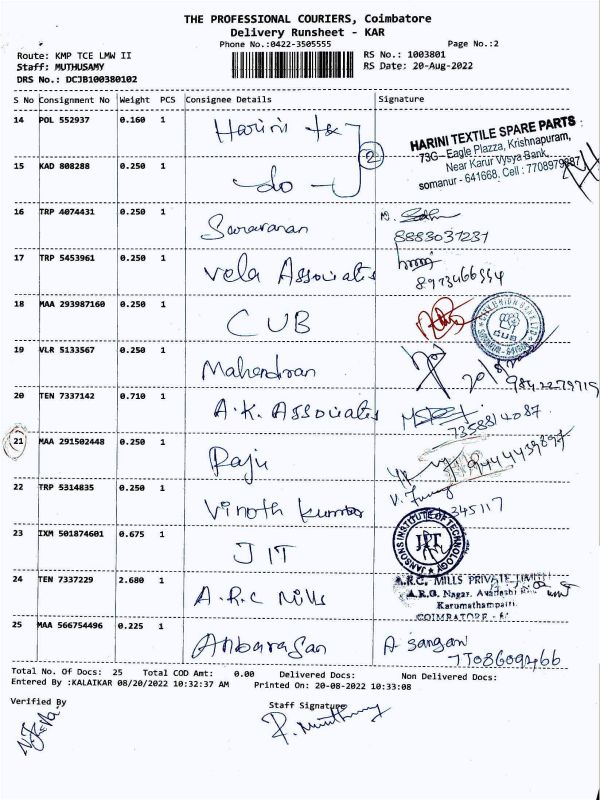 THE PROFESSIONAL COURIERS, Coimbatore
Delivery Runsheet - KAR
Phone No.:0422-3505555 Page No.:2
Route: KMP TCE LMW II RS No.: 1003801
Staff: MUTHUSAMY RS Date: 20-Aug-2022
DRS No.: DCJB100380102
S No Consignment No Weight PCS Consignee Details Signature
14 POL 552937 0.160 1 Harini tex
HARINI TEXTILE SPARE PARTS
73G - Eagle Plazza, Krishnapuram,
Near Karur Vysya Bank,
somanur - 641668. Cell : 7708979887
2
15 KAD 808288 0.250 1 do
16 TRP 4074431 0.250 1 Saravanan
8883031231
17 TRP 5453961 0.250 1 Vela Associates
8973466554
18 MAA 293987160 0.250 1 CUB
CUB
19 VLR 5133567 0.250 1 Mahendran
20 TEN 7337142 0.710 1 A.K. Associates
7358814087
21 MAA 291502448 0.250 1 Raju
22 TRP 5314835 0.250 1 Vinoth kumar
345117
23 IXM 501874601 0.675 1 JIT
JANSONS INSTITUTE OF TECHNOLOGY
JIT
24 TEN 7337229 2.680 1 A.R.C Mills
A.R.C. MILLS PRIVATE LIMITED
A.R.G. Nagar, Avanashi
Karumathampatti
COIMBATORE
25 MAA 566754496 0.225 1 Anbarasan
Total No. Of Docs: 25 Total COD Amt: 0.00 Delivered Docs: Non Delivered Docs:
Entered By :KALAIKAR 08/20/2022 10:32:37 AM Printed On: 20-08-2022 10:33:08
Verified By Staff Signature